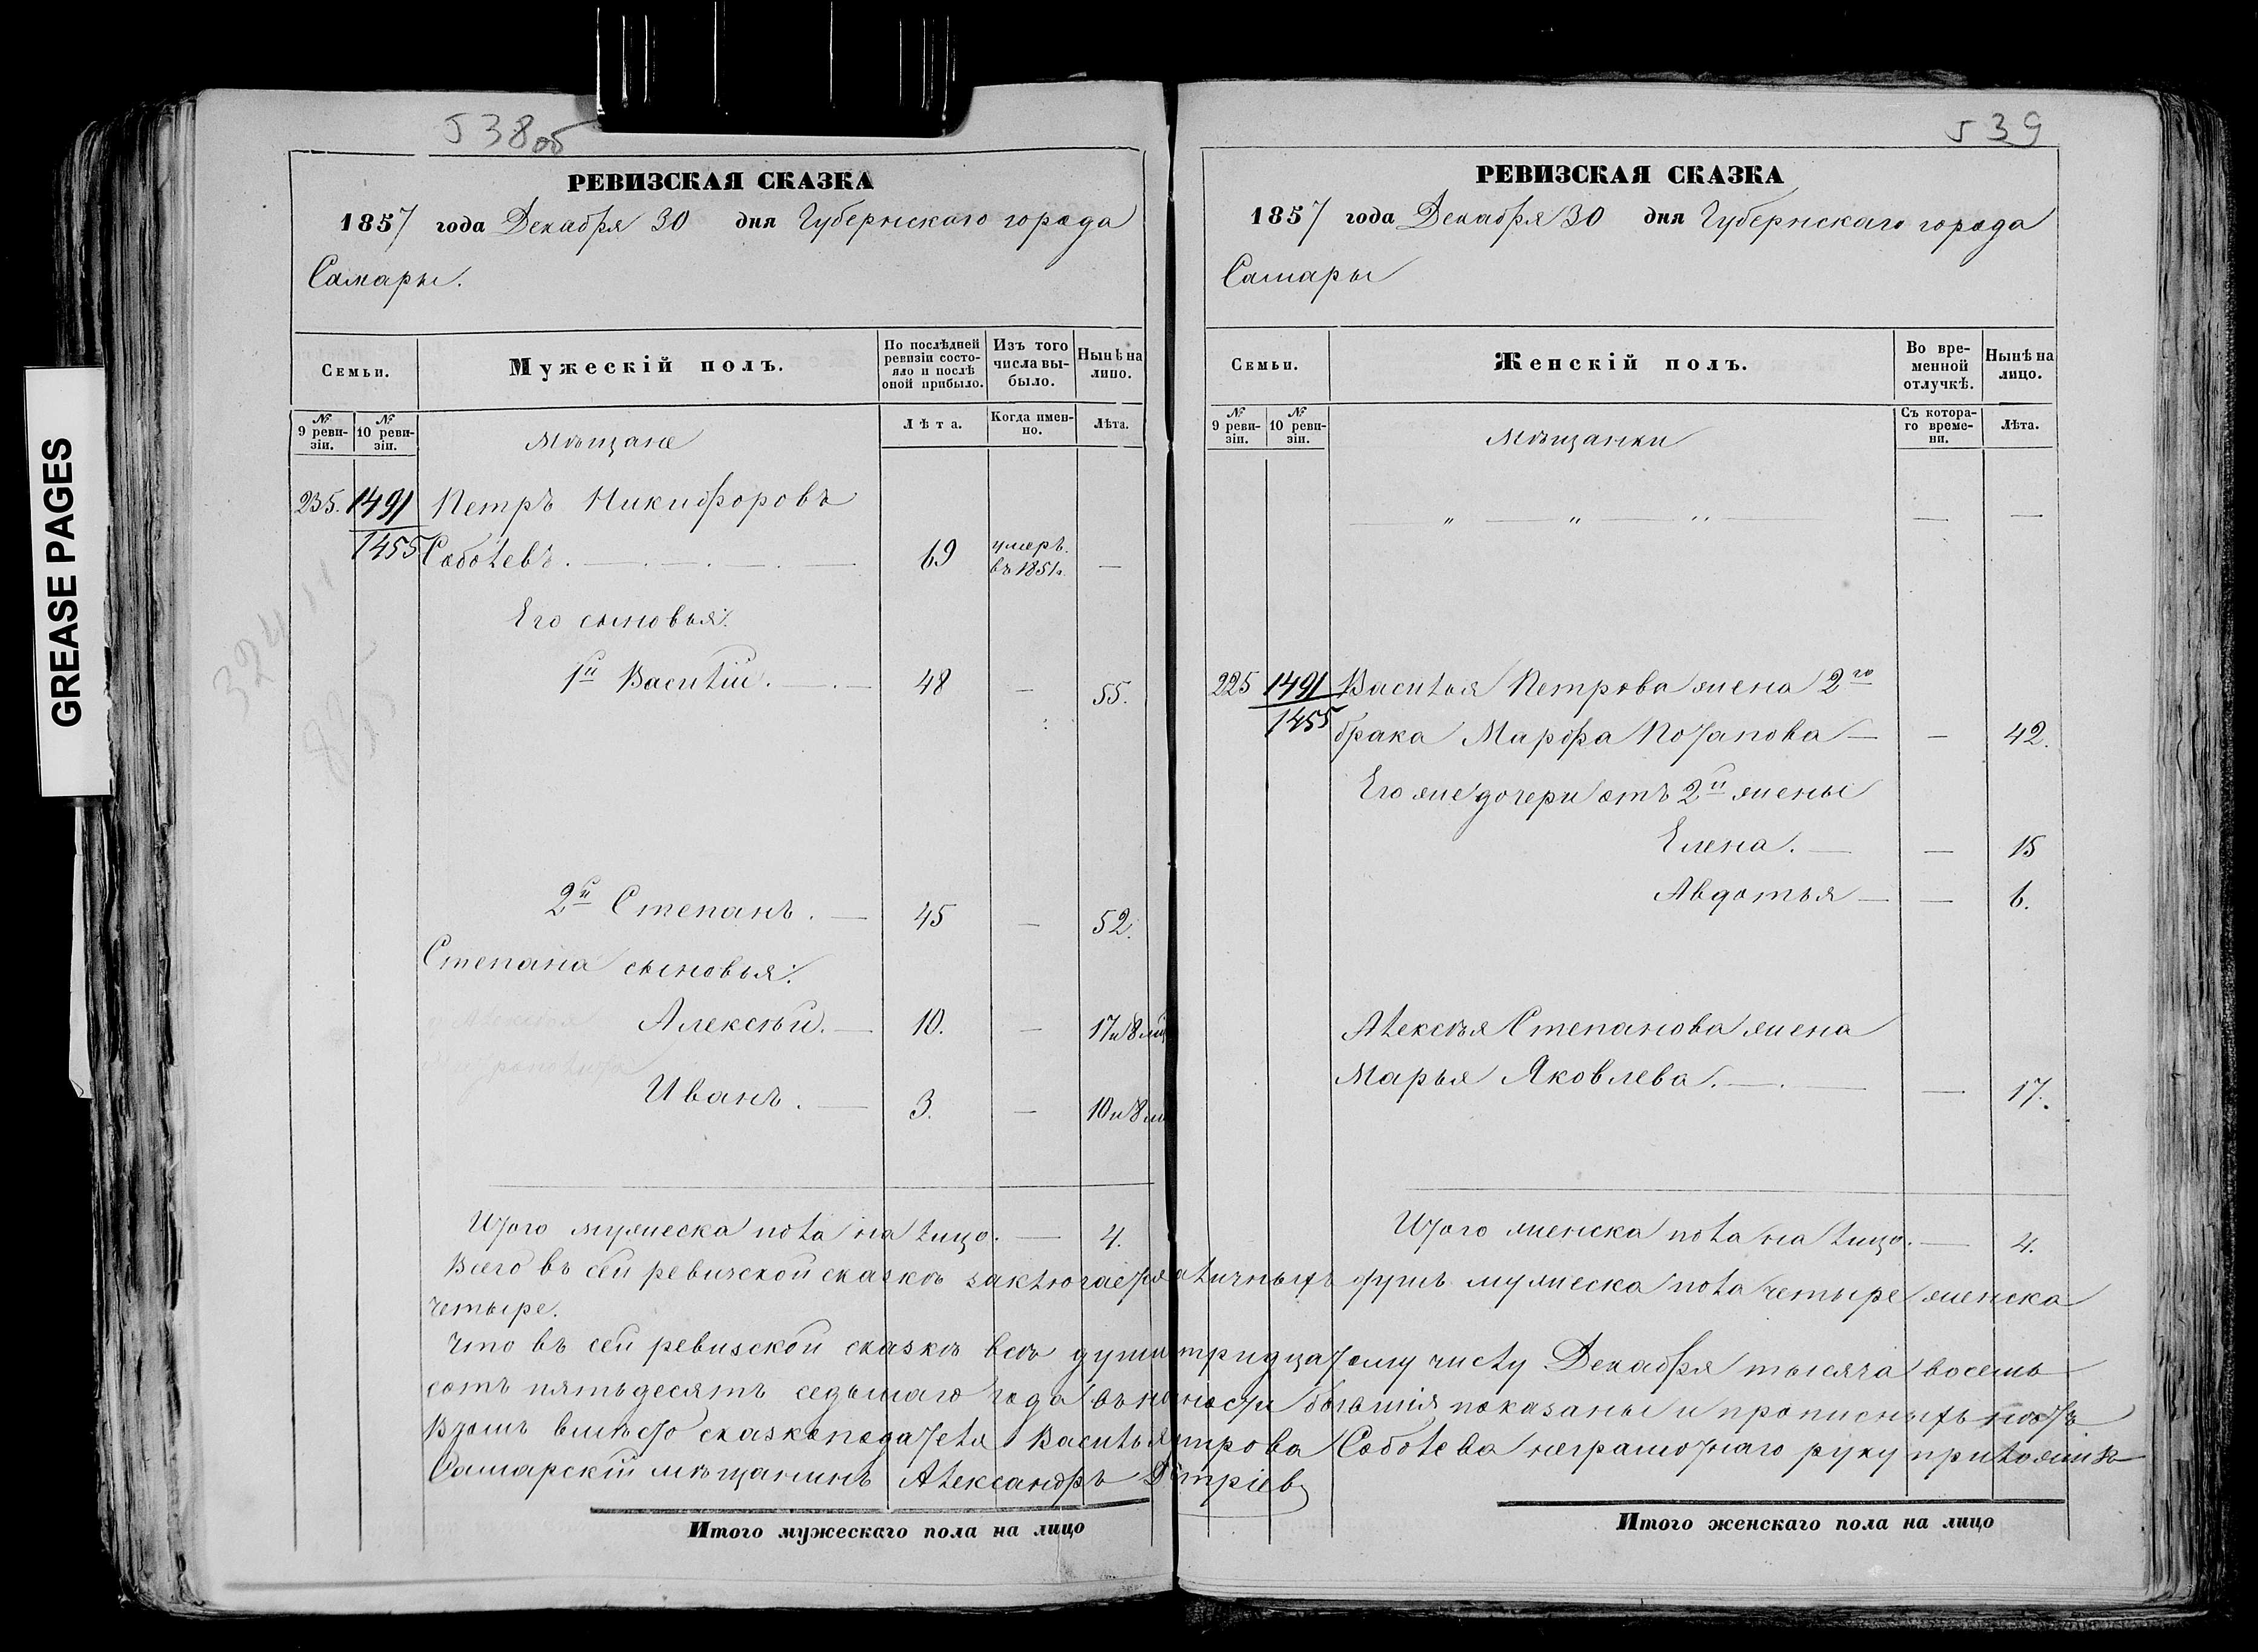 538об
РЕВИЗСКАЯ СКАЗКА
1857 года Декабря 30 дня Губернскаго города
Самары.
Семьи.
Мужескій полъ.
По послѣдней ревизіи состояло и послѣ оной прибыло.
Изъ того числа выбыло.
Нынѣ на лицо.
№ 9 ревизіи.
№ 10 ревизіи.
Лѣта.
Когда именно.
Лѣта.
Мѣщане
235. 1491 Петръ Никифоровъ
1455 Соболевъ. 69 умеръ въ 1851г. —
Его сыновья:
1й Василій. 48 — 55.
2й Степанъ. 45 — 52.
Степана сыновья:
Алексѣй. 10. — 17 и 8 мц
Иванъ. 3. — 10 и 8 м
Итого мужеска пола на лицо. 4.
539
РЕВИЗСКАЯ СКАЗКА
1857 года Декабря 30 дня Губернскаго города
Самары
Семьи.
Женскій полъ.
Во временной отлучкѣ.
Нынѣ на лицо.
№ 9 ревизіи.
№ 10 ревизіи.
Съ котораго времени.
Лѣта.
Мѣщанки
— " — " — " — — —
225 1491 Василья Петрова жена 2го
1455 брака Марфа Потапова — — 42.
Его же дочери отъ 2й жены
Елена. — — 15
Авдотья — — 6.
Алексѣя Степанова жена
Марья Яковлева. — 17.
Итого женска пола на лицо. — 4.
Всего въ сей ревизской сказкѣ заключается наличныхъ душъ мужеска пола четыре женска
четыре.
Что въ сей ревизской сказкѣ всѣ души тридцатому числу Декабря тысяча восемь
сотъ пятьдесятъ седьмаго года въ наличности бывшія показаны и прописныхъ нѣтъ
В томъ вмѣсто сказкоподателя Василья Петрова Соболева неграмотнаго руку приложилъ
Самарскій мѣщанинъ Александръ Дмитріевъ
Итого мужескаго пола на лицо
Итого женскаго пола на лицо
GREASE PAGES